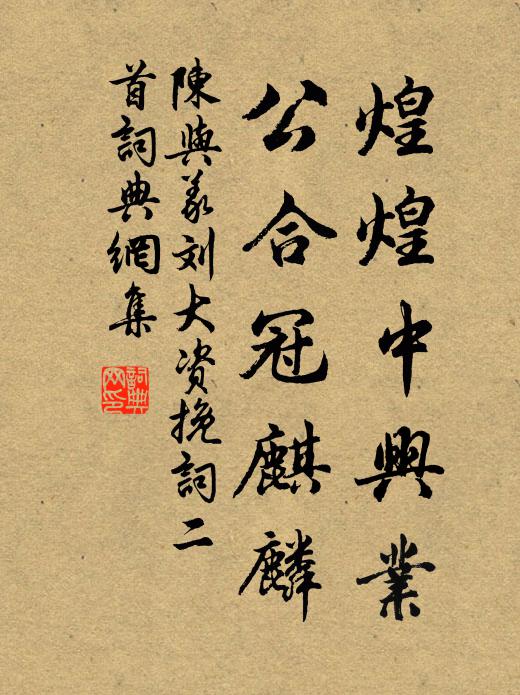 煌煌中興業
公合冠麒麟
陳與義刘大资挽詞二
首詞典網集
詞典
网印